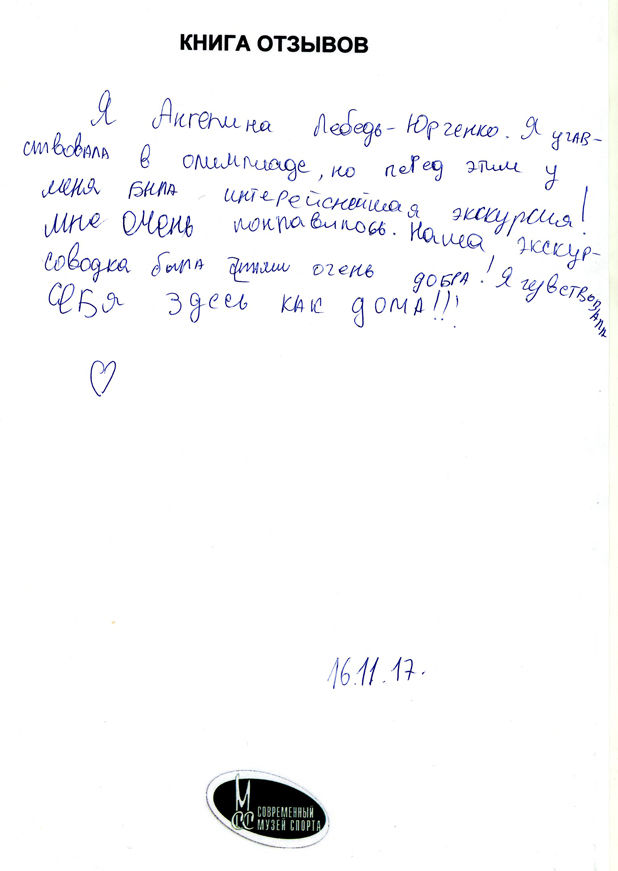 КНИГА ОТЗЫВОВ
Я Ангелина Лебедь-Юрченко. Я учав-
ствовала в олимпиаде, но перед этим у
меня была интерейснейшая экскурсия!
мне очень понравилось. Наша экскур-
соводка была очень добра! Я чувствовала
себя здесь как дома!!!
16.11.17.
МСС СОВРЕМЕННЫЙ
МУЗЕЙ СПОРТА